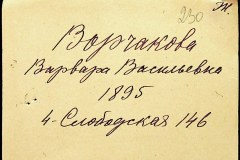 230
Ж.
Ворчакова
Варвара Васильевна
1895
4-Слободская 146